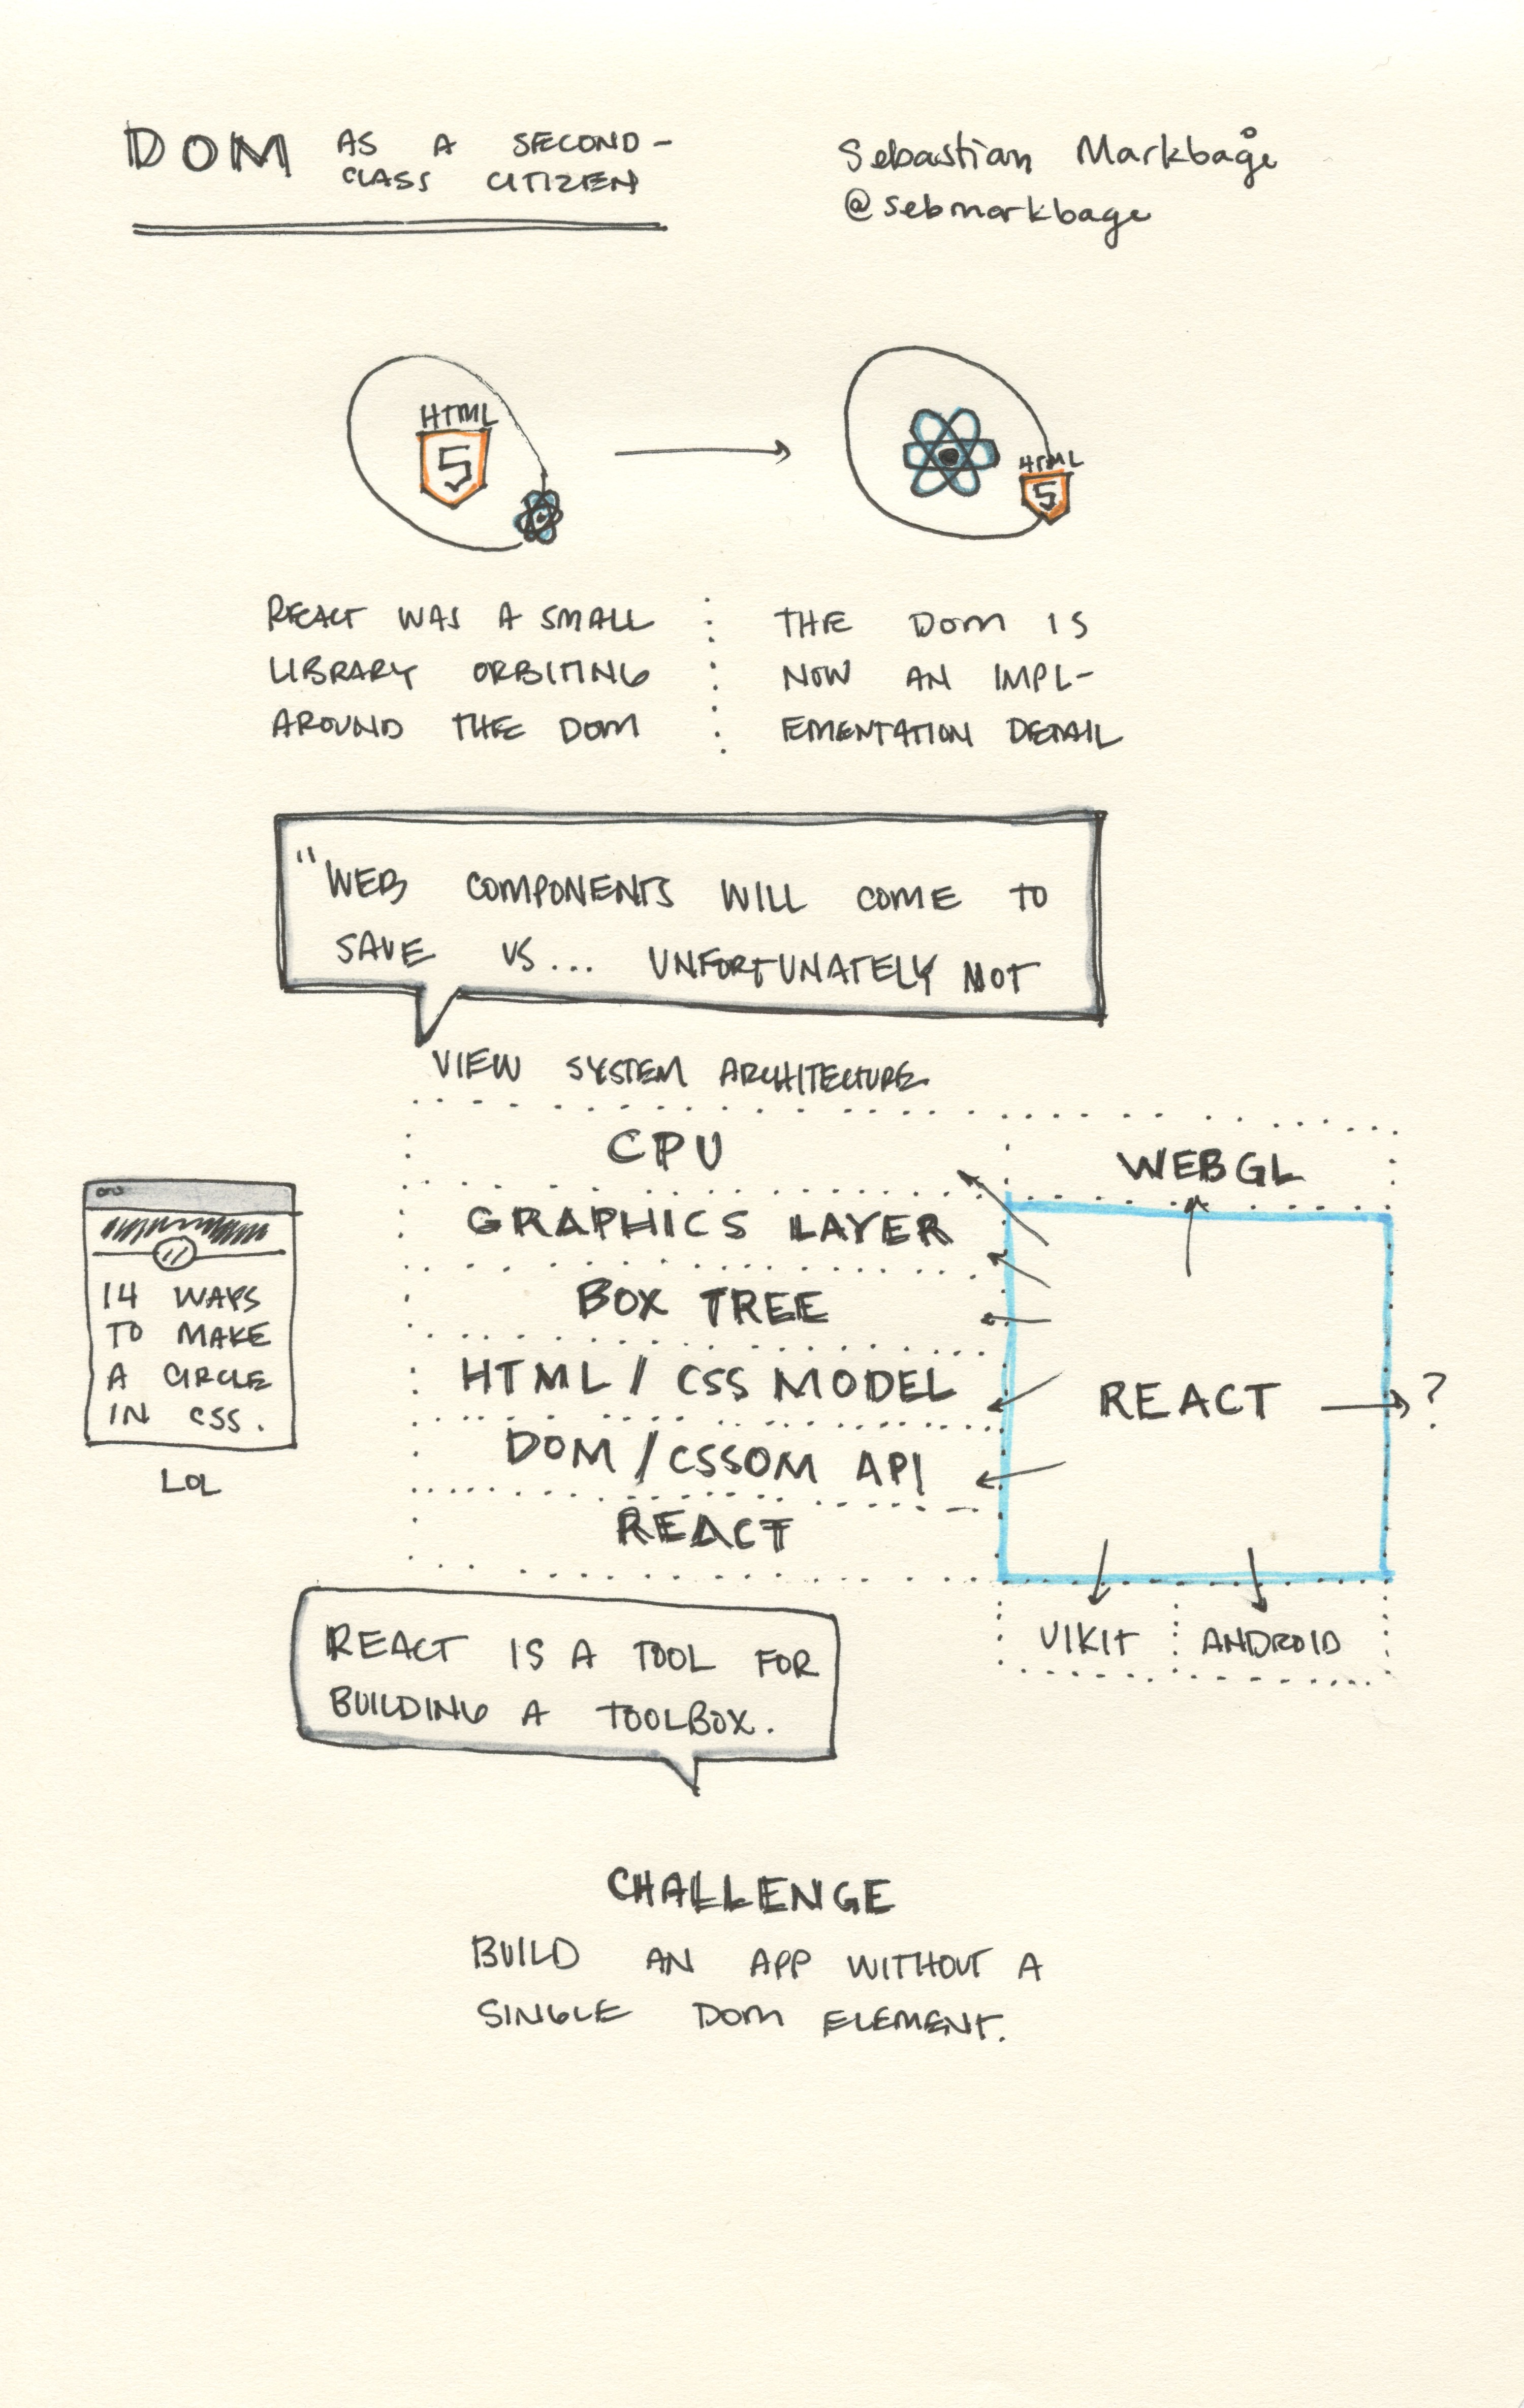 DOM AS A SECOND-
CLASS CITIZEN
Sebastian Markbåge
@sebmarkbage
HTML
5
HTML
5
REACT WAS A SMALL
LIBRARY ORBITING
AROUND THE DOM
THE DOM IS
NOW AN IMPL-
EMENTATION DETAIL
"WEB COMPONENTS WILL COME TO
SAVE US... UNFORTUNATELY NOT
VIEW SYSTEM ARCHITECTURE
CPU
GRAPHICS LAYER
BOX TREE
HTML / CSS MODEL
DOM / CSSOM API
REACT
WEBGL
REACT
?
UIKIT
ANDROID
14 WAYS
TO MAKE
A CIRCLE
IN CSS.
LOL
REACT IS A TOOL FOR
BUILDING A TOOLBOX.
CHALLENGE
BUILD AN APP WITHOUT A
SINGLE DOM ELEMENT.